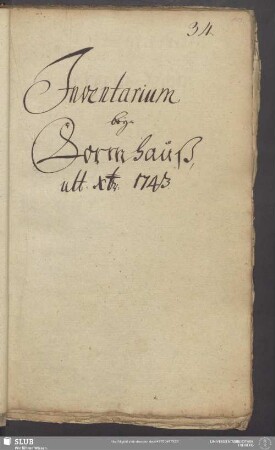 34.
Inventarium
beym
Dorrn hauß,
ult. Xbr. 1743
SLUB
Wir führen Wissen.